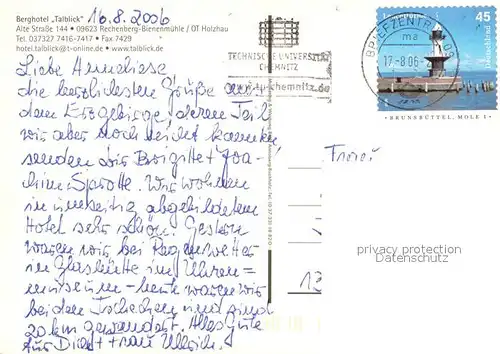 Berghotel „Talblick"
Alte Straße 144 • 09623 Rechenberg-Bienenmühle / OT Holzhau
Tel. 037327 7416-17 • Fax 7429
hotel.talblick@t-online.de • www.talblick.de
16.8.2006
Liebe Hanneliese
die herzlichsten Grüße aus
dem Erzgebirge, deren Teil
wir aber noch nicht kannten
senden wir Brigitte + Joa-
chim Sprotte. Wir wohnen
in umseitig abgebildetem
Hotel sehr schön. Gestern
waren wir bei Regenwetter
in Glashütte im Uhren=
museum - heute waren wir
bei den Tschechen und sind
20 km gewandert. Alles Gute
für Dich + Frau Ullrich.
TECHNISCHE UNIVERSITÄT
CHEMNITZ
chemnitz.de
BRIEFZENTRUM 09
ma
17-8.06
45
Deutschland
BRUNSBÜTTEL, MOLE 1
Frau
12
privacy protection
Datenschutz